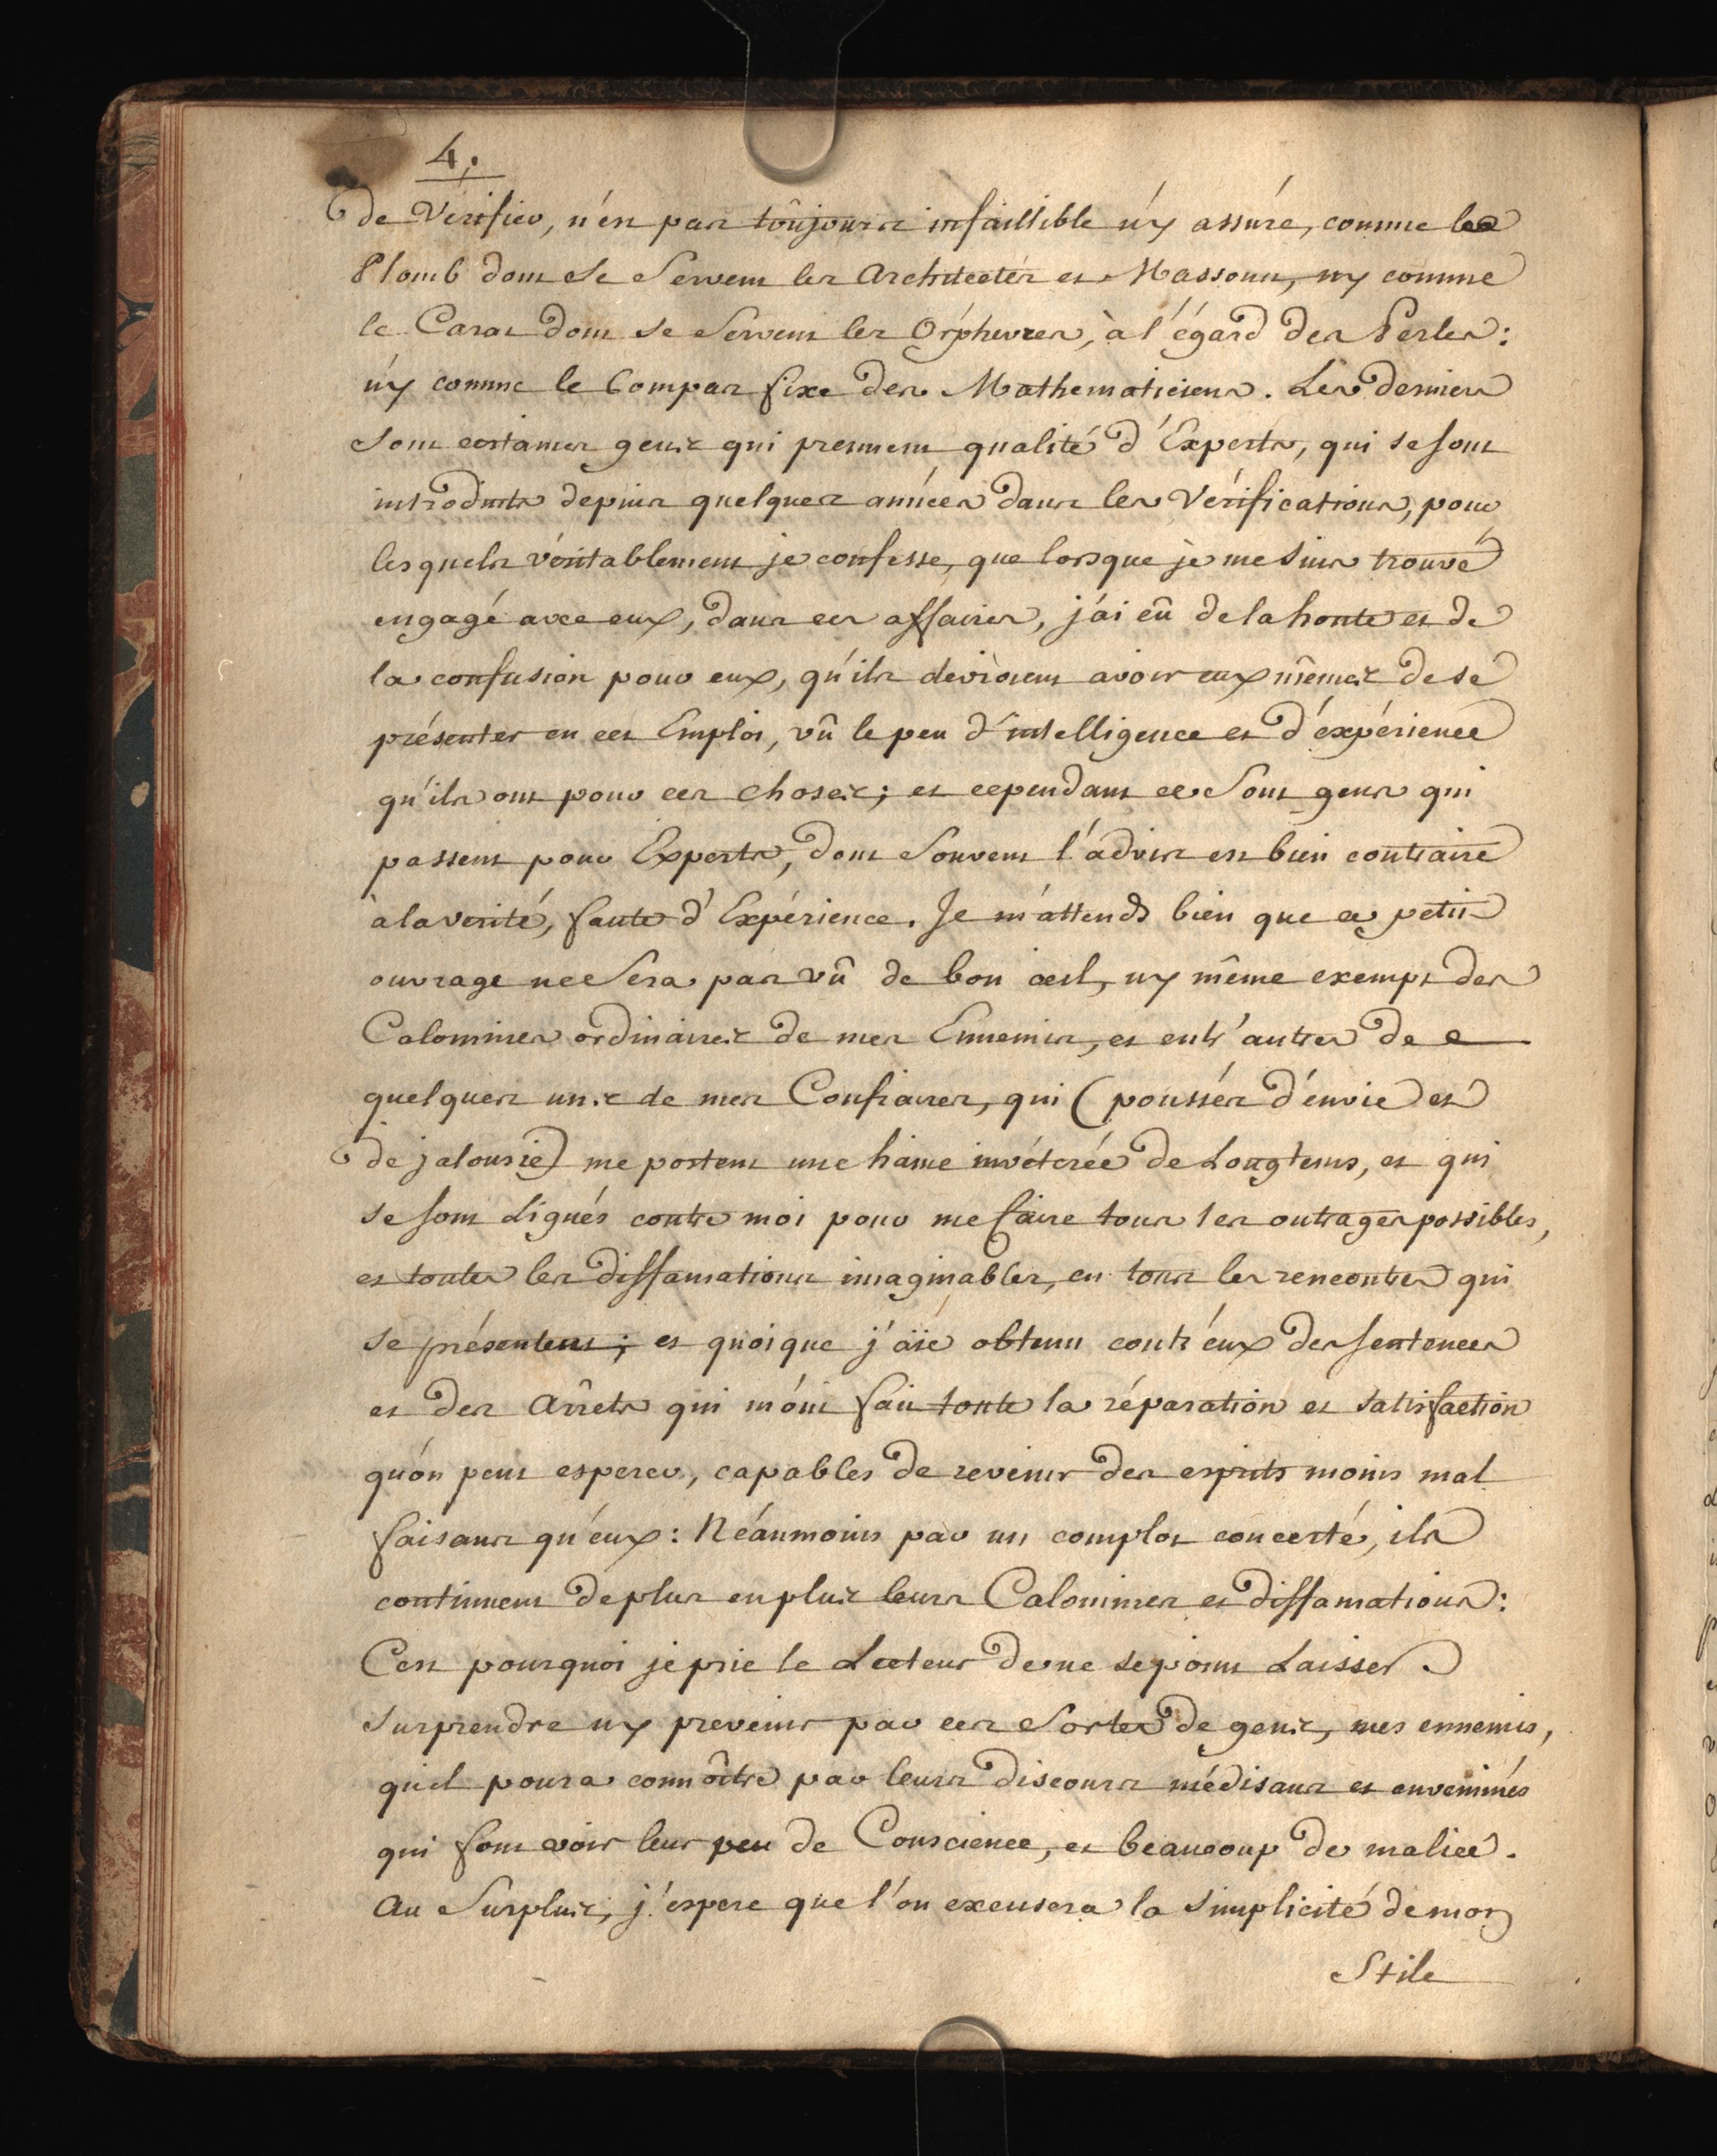 4.
de Vérifier, n'est pas toûjours infaillible n'y assûré, comme le
Plomb dont se Servent les Architectes et Massons, ny comme
le Carat dont se Servent les Orphevres, à l'égard des Perles:
n'y comme le Compas fixe des Mathematiciens. Les derniers
sont certaines gens qui prennent qualité d'Experts, qui se sont
introduits depuis quelques années dans les Vérifications, pour
lesquels véritablement je confesse, que lorsque je me suis trouvé
engagé avec eux, dans ces affaires, j'ai eû de la honte et de
la confusion pour eux, qu'ils devroient avoir eux mêmes de se
présenter en cet Emploi, vû le peu d'intelligence et d'éxpérience
qu'ils ont pour ces choses; et cependant ce sont gens qui
passent pour Experts, dont Souvent l'advis est bien contraire
à la verité, faute d'Expérience. Je m'attends bien que ce petit
ouvrage ne Sera pas vû de bon œil, ny même exempt des
Calomnies ordinaires de mes Ennemis, et entr'autres de
quelques uns de mes Confraires, qui (poussés d'énvie et
de jalousie) me portent une haine invéterée de Longtems, et qui
se sont Ligués contre moi pour me faire tous les outrages possibles,
et toutes les diffamations imaginables, en tous les rencontres qui
se présentent; et quoique j'aïe obtenu contr'eux des sentences
et des Arrêts qui m'ónt fait toute la réparation et satisfaction
qu'ón peut esperer, capables de revenir des esprits moins mal
faisans qu'eux: Néanmoins par un complot concerté, ils
continuent de plus en plus leurs Calomnies et diffamations:
C'est pourquoi je prie le Lecteur de ne se point Laisser
surprendre ny prevenir par ces Sortes de gens, mes ennemis,
qu'il poura connoître par leurs discours médisans et envenimés
qui font voir leur peu de Conscience, et beaucoup de malice.
Au Surplus, j'espere que l'on excusera la simplicité de mon
Stile